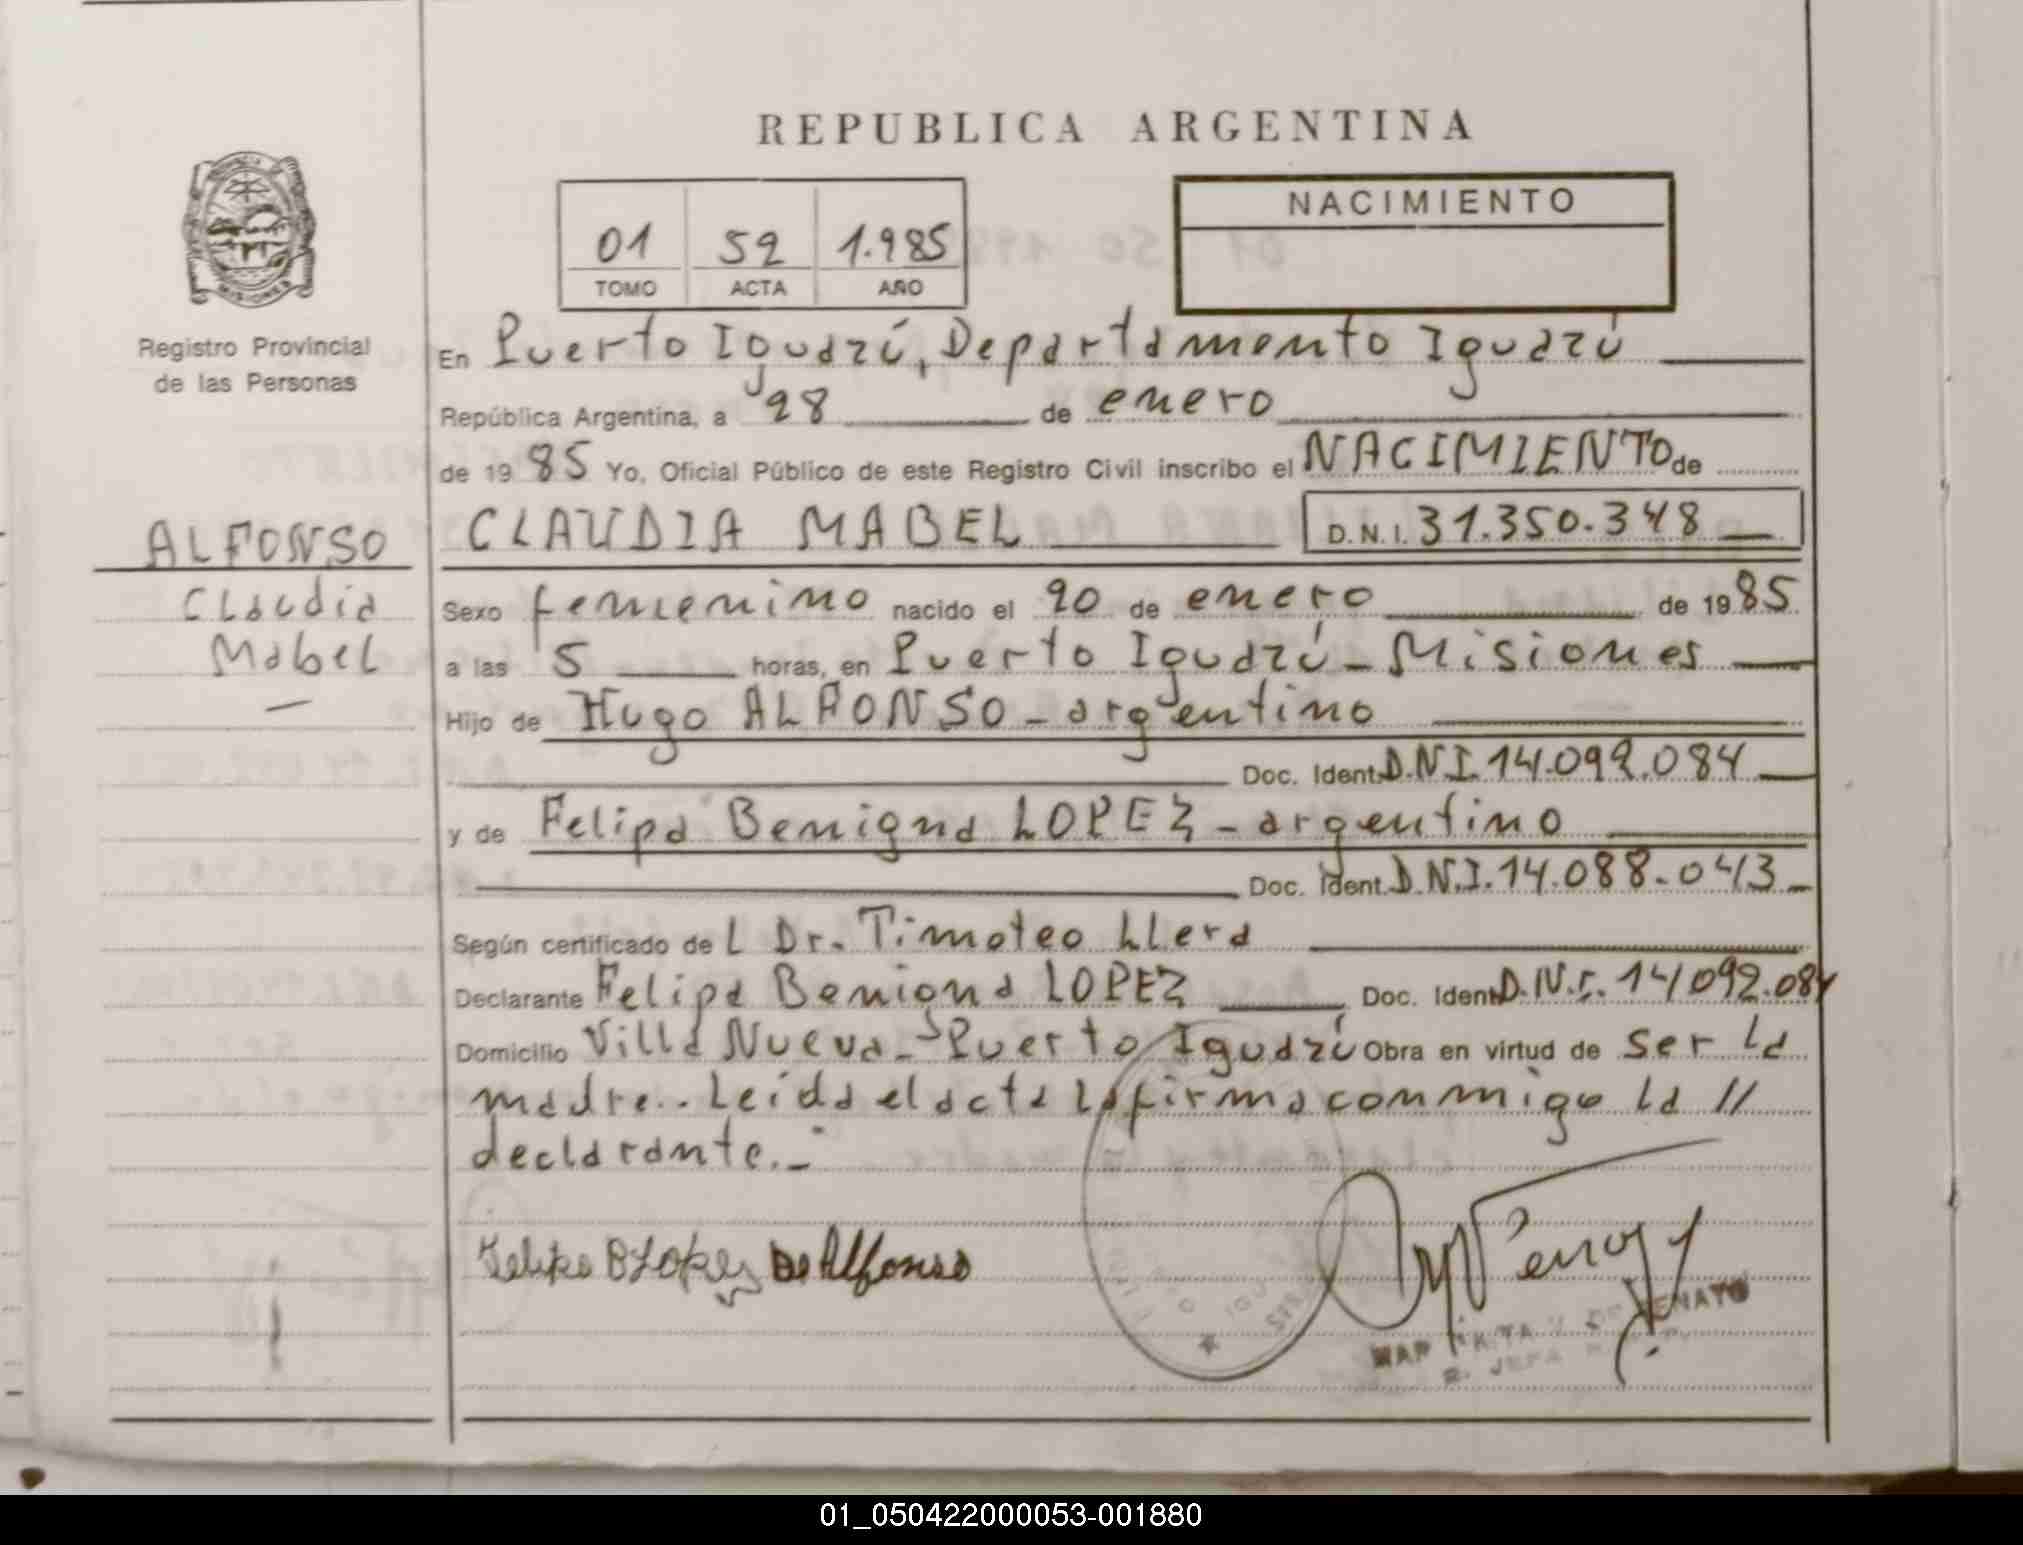 REPUBLICA ARGENTINA
NACIMIENTO
01 52 1.985
TOMO ACTA AÑO
MISIONES
Registro Provincial
de las Personas
En Puerto Iguazú, Departamento Iguazú
República Argentina, a 28 de enero
de 19 85 Yo, Oficial Público de este Registro Civil inscribo el NACIMIENTO de
ALFONSO
Claudia
Mabel
CLAUDIA MABEL D.N.I. 31.350.348
Sexo femenino nacido el 20 de enero de 19 85
a las 5 horas, en Puerto Iguazú - Misiones
Hijo de Hugo ALFONSO - argentino
Doc. Ident. D.N.I. 14.092.084
y de Felipa Benigna LOPEZ - argentino
Doc. Ident. D.N.I. 14.088.043
Según certificado de L Dr. Timoteo LLera
Declarante Felipa Benigna LOPEZ Doc. Ident. D.N.I. 14.092.084
Domicilio Villa Nueva - Puerto Iguazú Obra en virtud de ser la
madre.. Leida el acta la firma conmigo la //
declarante.-
B Lopez De Alfonso
01_050422000053-001880